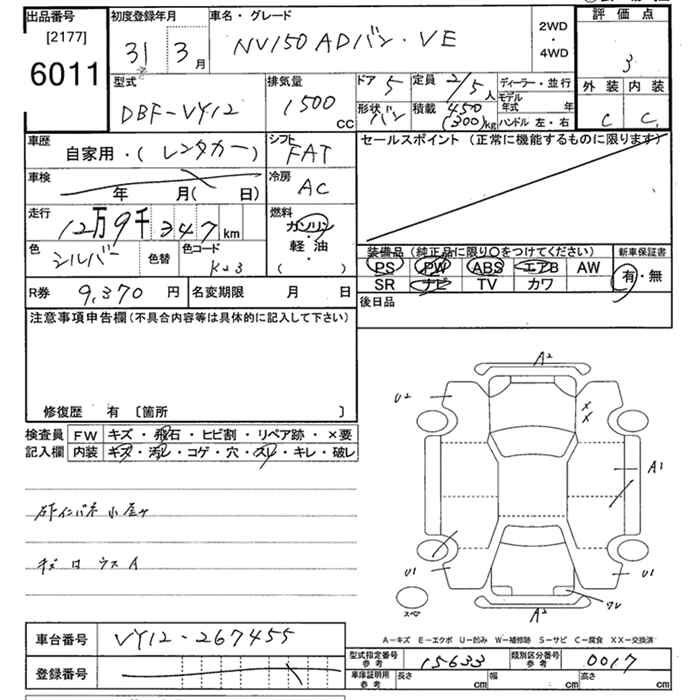 出品番号 [2177] 6011
初度登録年月 31 3月
車名・グレード NV150 ADバン・VE
2WD・4WD
評価点 3
型式 DBF-VY12
排気量 1500 CC
ドア 5
定員 2/5人
ディーラー・並行
形状 バン
積載 450 (300)kg
モデル年式 年
ハンドル 左・右
外装 内装
C C
車歴 自家用・(レンタカー)
シフト FAT
セールスポイント (正常に機能するものに限ります)
車検 年 月( 日)
冷房 AC
走行 12万9千347km
燃料 ガソリン・軽油・( )
色 シルバー 色替 色コード K23
装備品 (純正品に限り○をつけてください)
新車保証書
PS PW ABS エアB AW
SR ナビ TV カワ
有・無
R券 9,370円 名変期限 月 日
後日品
注意事項申告欄(不具合内容等は具体的に記入して下さい)
修復歴 有 [箇所 ]
検査員 FW キズ・飛石・ヒビ割・リペア跡・×要
記入欄 内装 キズ・汚れ・コゲ・穴・スレ・キレ・破レ
キズ
A2
U2
XX
A1
U1
U1
スペア
ワレ
A2
A-キズ E-エクボ U-凹み W-補修跡 S-サビ C-腐食 XX-交換済
車台番号 VY12-267455
型式指定番号 参考 15633 類別区分番号 参考 0017
登録番号
車庫証明用 参考 長さ cm 幅 cm 高さ cm